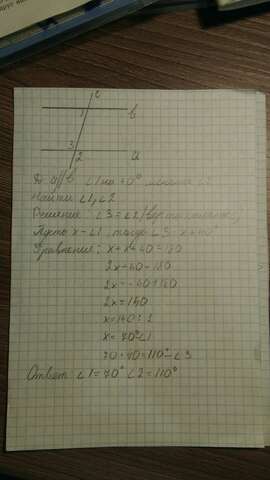 c
1
b
3
2
a
a||b ∠1 на 40° меньше
Найти ∠1, ∠2
Решение: ∠3 = ∠2
Пусть x - ∠1, тогда ∠3 - x+40°
Уравнение: x+x+40=180
2x+40=180
2x=-40+180
2x=140
x=140:2
x=70° ∠1
70+40=110° - ∠3
Ответ ∠1=70° ∠2=110°